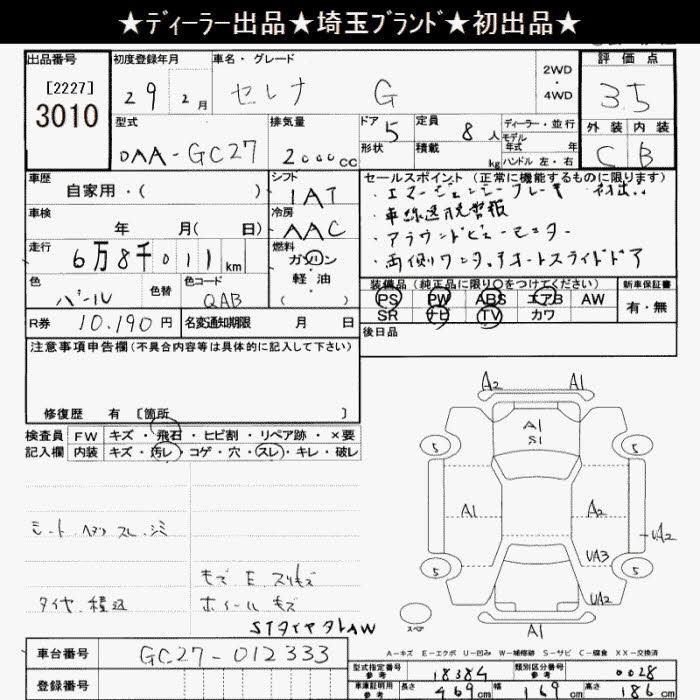 ★ディーラー出品★埼玉ブランド★初出品★
出品番号 初度登録年月 車名・グレード 評価点
[2227] 29年 2月 セレナ G 2WD・4WD 3.5
3010
型式 排気量 ドア 5 定員 8人 ディーラー・並行 外装 内装
DAA-GC27 2000cc 形状 積載 kg モデル年式 年 C B
ハンドル 左・右
車歴 シフト セールスポイント (正常に機能するものに限ります)
自家用・( ) IAT ・エマージェンシーブレーキ
車検 冷房 ・車線逸脱警報
年 月( 日) AAC ・アラウンドビューモニター
走行 燃料 ・両側ワンタッチオートスライドドア
6万8千011km ガソリン
色 色替 色コード 軽油 装備品 (純正品に限り○をつけてください) 新車保証書
パール QAB ・( ) PS PW ABS エアB AW 有・無
R券 10,190円 名変通知期限 月 日 SR ナビ TV カワ
注意事項申告欄(不具合内容等は具体的に記入して下さい) 後日品
修復歴 有 〔箇所 〕
検査員 FW キズ・飛石・ヒビ割・リペア跡・×要
記入欄 内装 キズ・汚レ・コゲ・穴・スレ・キレ・破レ
A2 A1
A1
S1
5 5
A1 A2 UA2
UA3
5 5
UA2
スペア
A1
シート スレ シミ
モズ E スリキズ
タイヤ 積込 ホイールキズ
A-キズ E-エクボ U-凹み W-補修跡 S-サビ C-腐食 XX-交換済
車台番号 GC27-012333
型式指定番号 参考 18384 類別区分番号 参考 0028
登録番号 車庫証明用 参考 長さ 469cm 幅 169cm 高さ 186cm